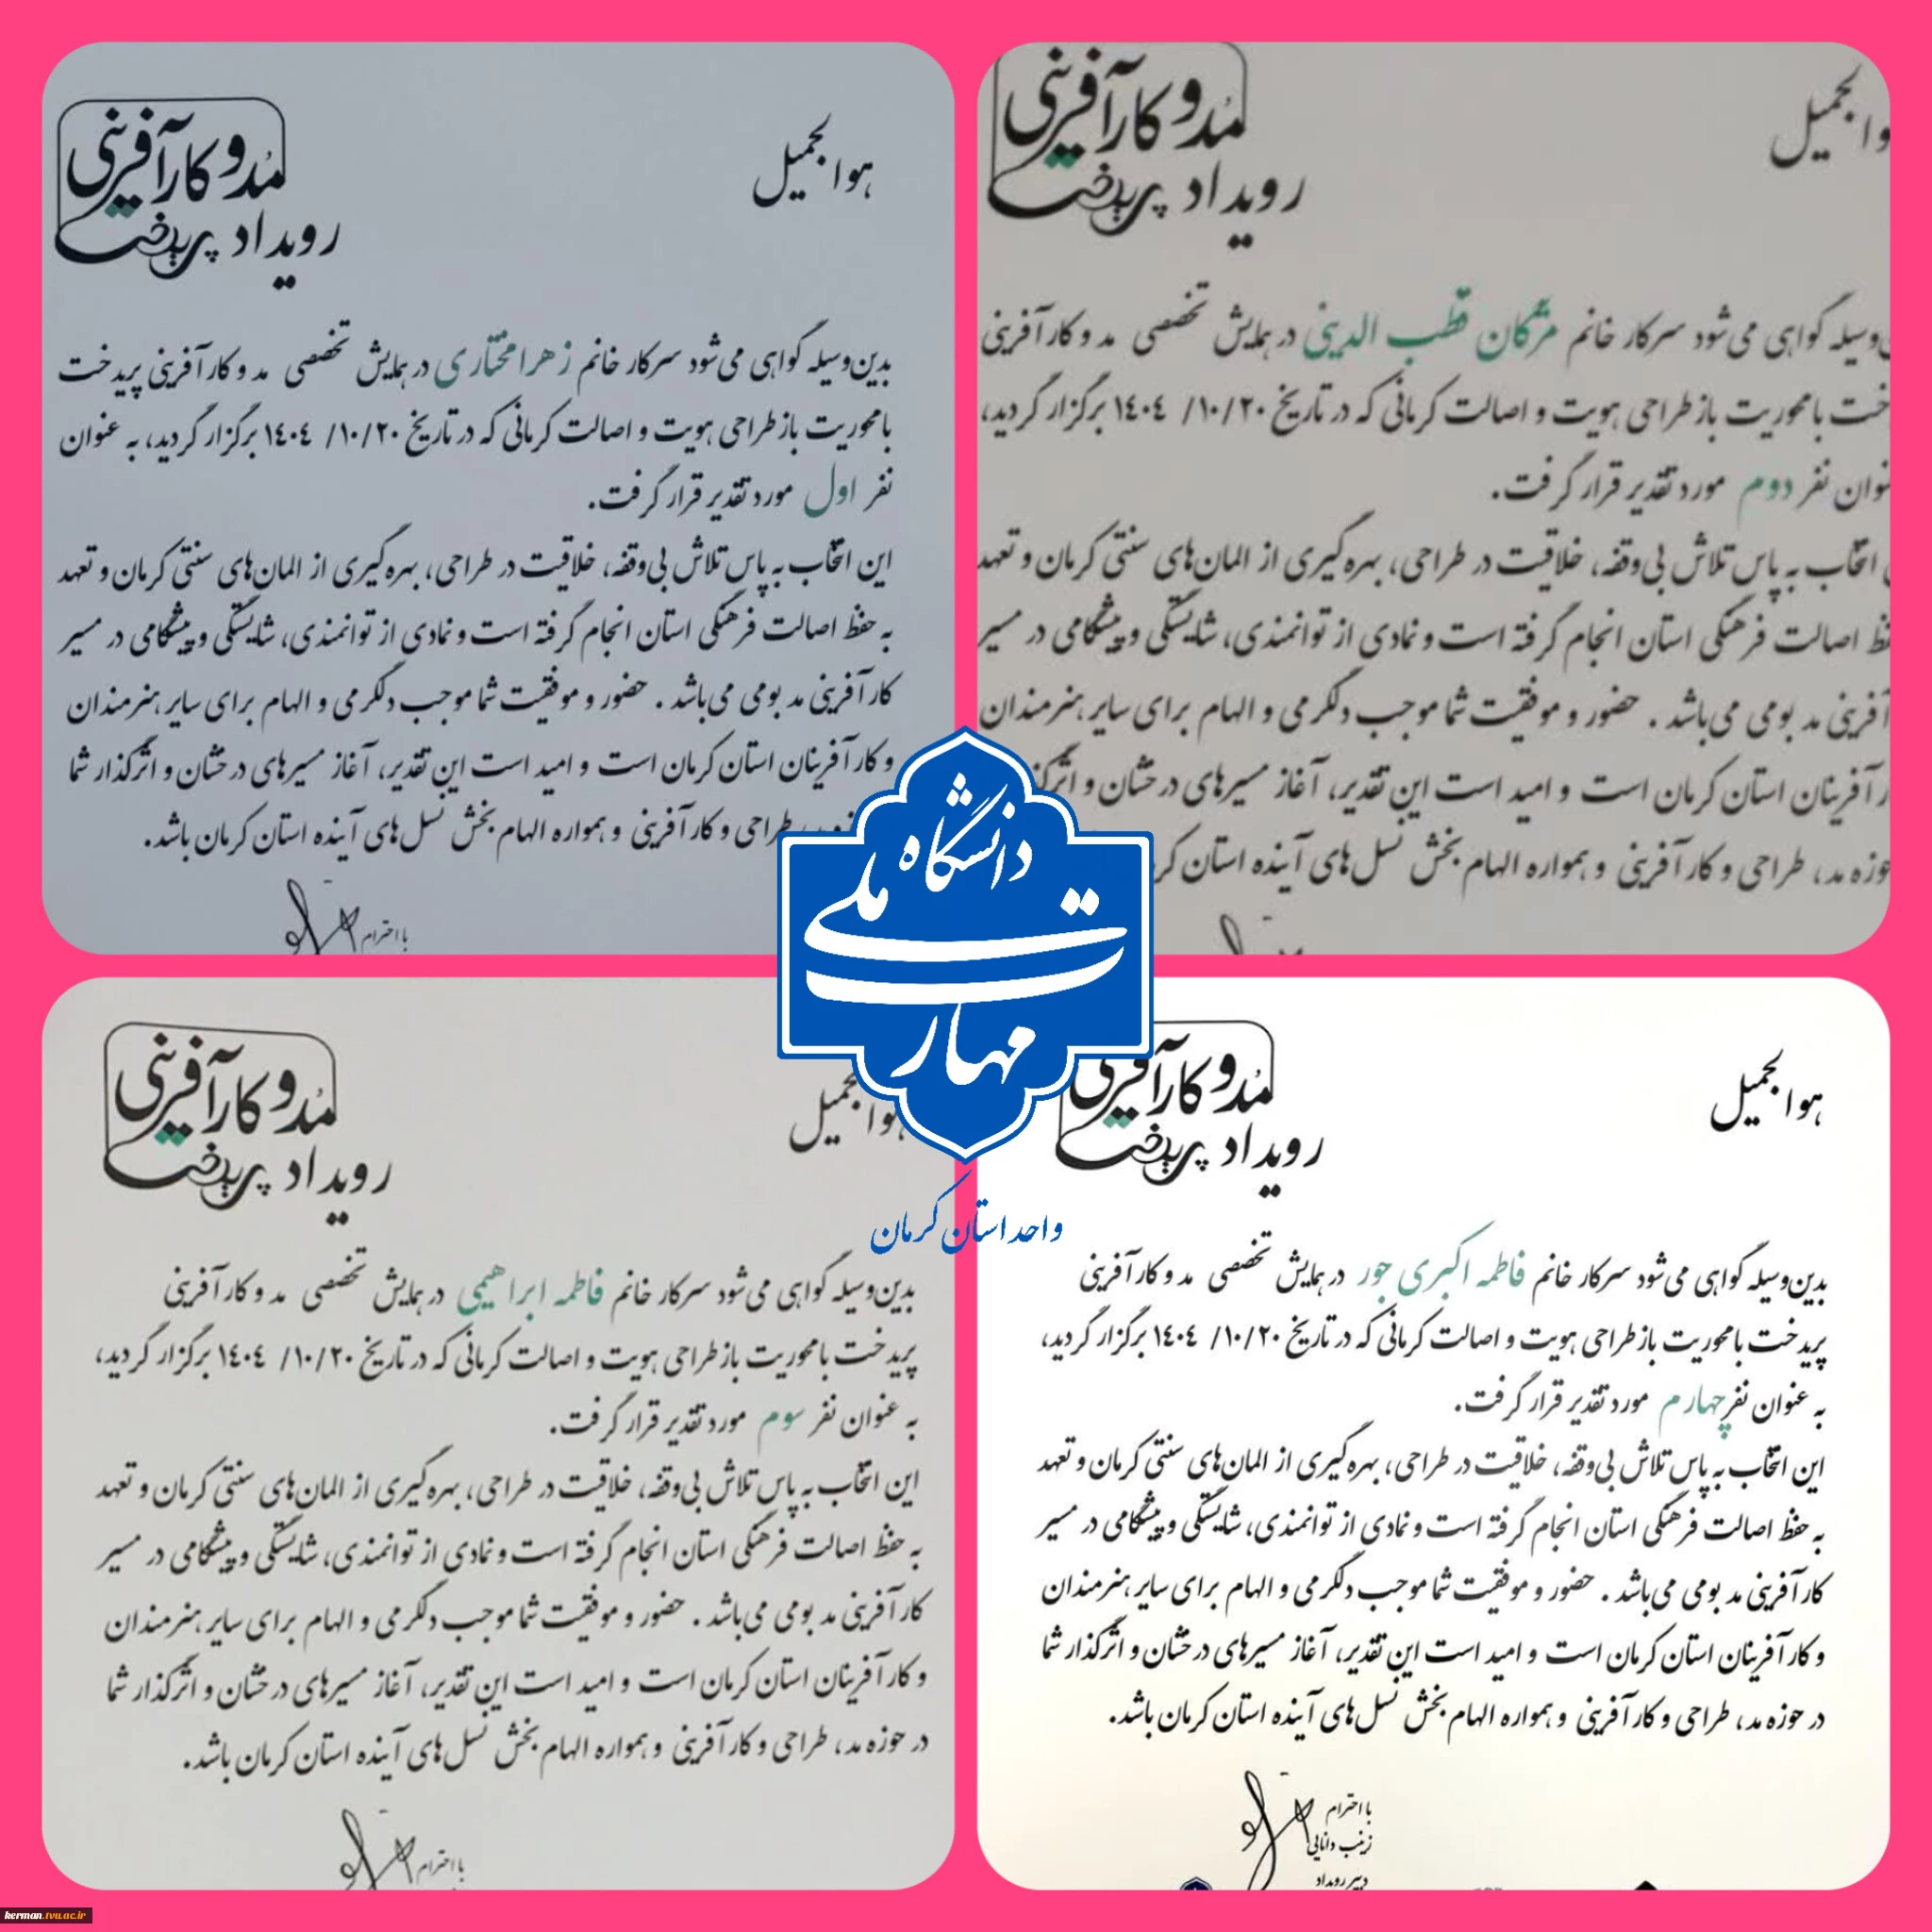 هوالجمیل
مُد و کارآفرینی
رویداد پریدخت
بدین‌وسیله گواهی می‌شود سرکار خانم زهرا مختاری در همایش تخصصی مد و کارآفرینی پریدخت
با محوریت بازطراحی هویت و اصالت کرمانی که در تاریخ ۱۴۰۴/۱۰/۲۰ برگزار گردید، به عنوان
نفر اول مورد تقدیر قرار گرفت.
این انتخاب به پاس تلاش بی‌وقفه، خلاقیت در طراحی، بهره‌گیری از المان‌های سنتی کرمان و تعهد
به حفظ اصالت فرهنگی استان انجام گرفته است و نمادی از توانمندی، شایستگی و پیشگامی در مسیر
کارآفرینی مد بومی می‌باشد. حضور و موفقیت شما موجب دلگرمی و الهام برای سایر هنرمندان
و کارآفرینان استان کرمان است و امید است این تقدیر، آغاز مسیرهای درخشان و اثرگذار شما
طراحی و کارآفرینی و همواره الهام بخش نسل‌های آینده استان کرمان باشد.
با احترام
مُد و کارآفرینی
رویداد پریدخت
سرکار خانم مژگان قطب الدینی در همایش تخصصی مد و کارآفرینی
با محوریت بازطراحی هویت و اصالت کرمانی که در تاریخ ۱۴۰۴/۱۰/۲۰ برگزار گردید،
نفر دوم مورد تقدیر قرار گرفت.
انتخاب به پاس تلاش بی‌وقفه، خلاقیت در طراحی، بهره‌گیری از المان‌های سنتی کرمان و تعهد
اصالت فرهنگی استان انجام گرفته است و نمادی از توانمندی، شایستگی و پیشگامی در مسیر
آفرینی مد بومی می‌باشد. حضور و موفقیت شما موجب دلگرمی و الهام برای سایر هنرمندان
آفرینان استان کرمان است و امید است این تقدیر، آغاز مسیرهای درخشان و
حوزه مد، طراحی و کارآفرینی و همواره الهام بخش نسل‌های آینده استان
دانشگاه
ملی
مهارت
واحد استان کرمان
هوالجمیل
مُد و کارآفرینی
رویداد پریدخت
بدین‌وسیله گواهی می‌شود سرکار خانم فاطمه ابراهیمی در همایش تخصصی مد و کارآفرینی
پریدخت با محوریت بازطراحی هویت و اصالت کرمانی که در تاریخ ۱۴۰۴/۱۰/۲۰ برگزار گردید،
به عنوان نفر سوم مورد تقدیر قرار گرفت.
این انتخاب به پاس تلاش بی‌وقفه، خلاقیت در طراحی، بهره‌گیری از المان‌های سنتی کرمان و تعهد
به حفظ اصالت فرهنگی استان انجام گرفته است و نمادی از توانمندی، شایستگی و پیشگامی در مسیر
کارآفرینی مد بومی می‌باشد. حضور و موفقیت شما موجب دلگرمی و الهام برای سایر هنرمندان
و کارآفرینان استان کرمان است و امید است این تقدیر، آغاز مسیرهای درخشان و اثرگذار شما
در حوزه مد، طراحی و کارآفرینی و همواره الهام بخش نسل‌های آینده استان کرمان باشد.
با احترام
هوالجمیل
مُد و کارآفرینی
رویداد پریدخت
بدین‌وسیله گواهی می‌شود سرکار خانم فاطمه اکبری جور در همایش تخصصی مد و کارآفرینی
پریدخت با محوریت بازطراحی هویت و اصالت کرمانی که در تاریخ ۱۴۰۴/۱۰/۲۰ برگزار گردید،
به عنوان نفر چهارم مورد تقدیر قرار گرفت.
این انتخاب به پاس تلاش بی‌وقفه، خلاقیت در طراحی، بهره‌گیری از المان‌های سنتی کرمان و تعهد
به حفظ اصالت فرهنگی استان انجام گرفته است و نمادی از توانمندی، شایستگی و پیشگامی در مسیر
کارآفرینی مد بومی می‌باشد. حضور و موفقیت شما موجب دلگرمی و الهام برای سایر هنرمندان
و کارآفرینان استان کرمان است و امید است این تقدیر، آغاز مسیرهای درخشان و اثرگذار شما
در حوزه مد، طراحی و کارآفرینی و همواره الهام بخش نسل‌های آینده استان کرمان باشد.
با احترام
زینب دانایی
دبیر رویداد
kerman.tvu.ac.ir